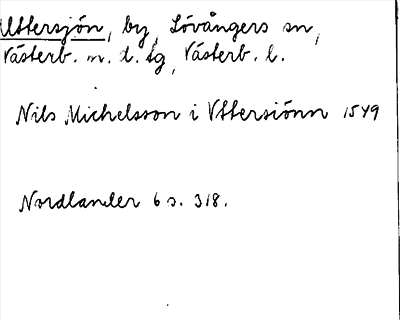 Uttersjön, by, Lövångers sn,
Västerb. m. d. tg, Västerb. l.
Nils Michelsson i Vttersiönn 1549
Nordlander 6 s. 318.